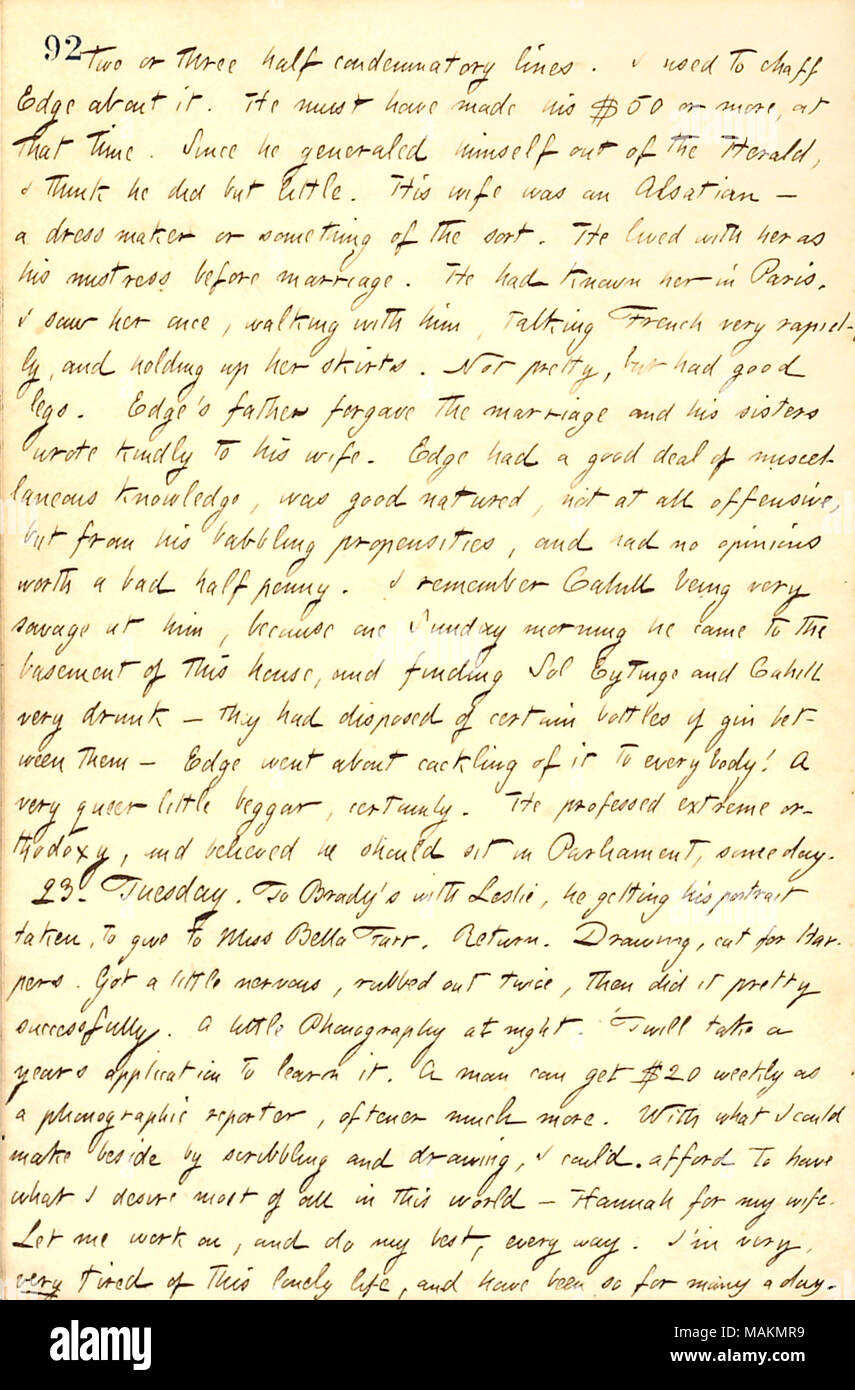 92 two or three half condemnatory lines. I used to chaff
Edge about it. He must have made his $50 or more, at
that time. Since he generaled himself out of the Herald,
I think he did but little. His wife was an Alsatian —
a dress maker or something of the sort. He lived with her as
his mistress before marriage. He had known her in Paris.
I saw her once, walking with him, talking French very rapid-
ly, and holding up her skirts. Not pretty, but had good
legs. Edge's father forgave the marriage and his sisters
wrote kindly to his wife. Edge had a good deal of miscel-
laneous knowledge, was good natured, not at all offensive,
but from his babbling propensities, and had no opinions
worth a bad half penny. I remember Cahill being very
savage at him, because one Sunday morning he came to the
basement of this house, and finding Sol Eytinge and Cahill
very drunk — they had disposed of certain bottles of gin bet-
ween them — Edge went about cackling of it to everybody! A
very queer little beggar, certainly. He professed extreme or-
thodoxy, and believed he should sit in Parliament, some day.
23. Tuesday. To Brady's with Leslie, he getting his portrait
taken, to give to Miss Bella Farr. Return. Drawing, cut for Har-
pers. Got a little nervous, rubbed out twice, then did it pretty
successfully. A little Phonography at night. 'Twill take a
years application to learn it. A man can get $20 weekly as
a phonographic reporter, oftener much more. With what I could
make beside by scribbling and drawing, I could afford to have
what I desire most of all in this world — Hannah for my wife.
Let me work on, and do my best, every way. I'm very,
very tired of this lonely life, and have been so for many a day.
alamy
Image ID: MAKMR9
www.alamy.com